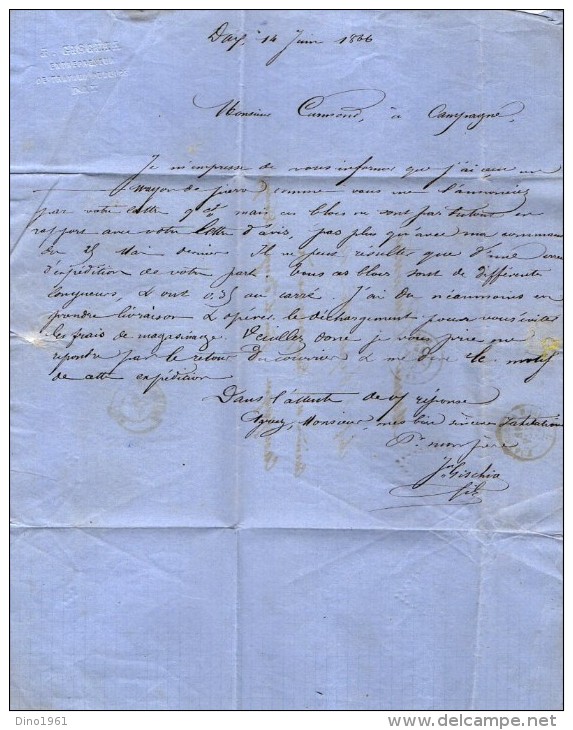 Dax, 14 Juin 1866
Monsieur Cumond, à Campagne,
Je m'empresse de vous informer que j'ai reçu un
wagon de pierre comme vous me l'annonciez
par votre lettre mais ces blocs ne sont pas du tout en
rapport avec votre lettre d'avis, pas plus qu'avec ma commande
du 25 Mai dernier. Il ne peut résulter que d'une erreur
d'expédition de votre part. Tous ces blocs sont de différentes
longueurs, & ont 0,35 au carré. J'ai dû néanmoins en
prendre livraison & opérer le déchargement pour vous éviter
les frais de magasinage. Veuillez donc je vous prie me
répondre par le retour du courrier & me dire le motif
de cette expédition
Dans l'attente de vos réponse
Agréez, Monsieur, mes bien sincères salutations
Pr mon père
Gischia
fils
Dino1961
www.delcampe.net